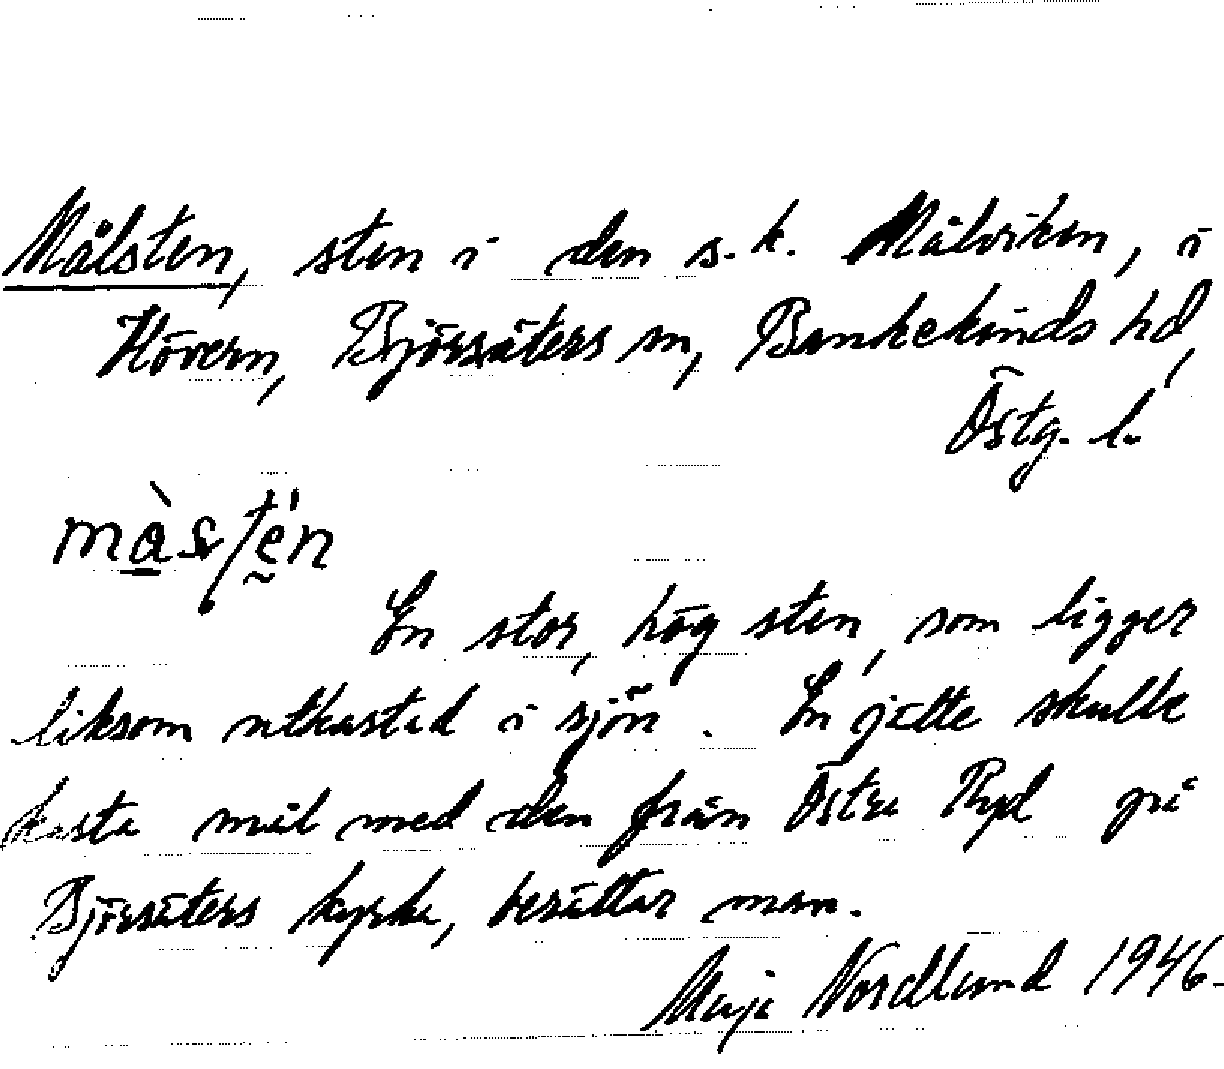 Målsten, sten i den s.k. Målviken, i
Hövern, Björsäters sn, Bankekinds hd,
Östg. l.
màstén
En stor, hög sten, som ligger
liksom utkastad i sjön. En jätte skulle
kasta mål med den från Östra Ryd på
Björsäters kyrka, berättar man.
Maja Nordlund 1946.